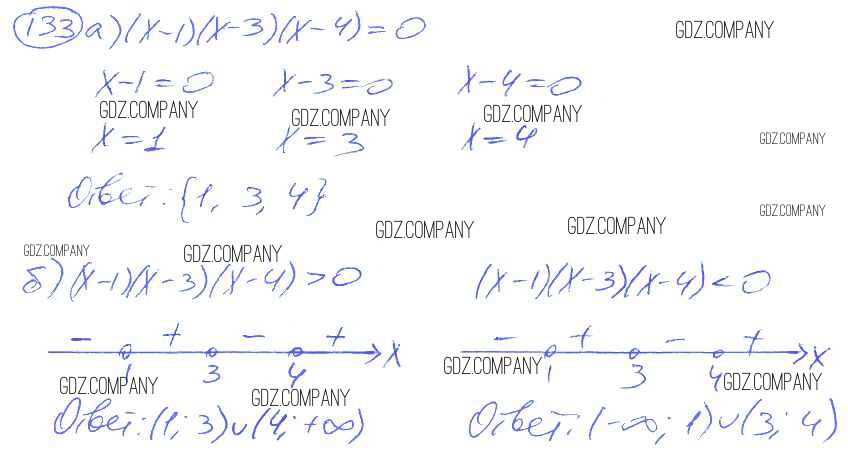 133 а) (x-1)(x-3)(x-4)=0
GDZ.COMPANY
x-1=0 x-3=0 x-4=0
GDZ.COMPANY GDZ.COMPANY GDZ.COMPANY
x=1 x=3 x=4
GDZ.COMPANY
Ответ: {1, 3, 4}
GDZ.COMPANY
GDZ.COMPANY GDZ.COMPANY
GDZ.COMPANY GDZ.COMPANY
б) (x-1)(x-3)(x-4)>0 (x-1)(x-3)(x-4)<0
- + - + - + - +
x x
1 3 4 1 3 4
GDZ.COMPANY
GDZ.COMPANY GDZ.COMPANY GDZ.COMPANY
Ответ: (1; 3)∪(4; +∞) Ответ: (-∞; 1)∪(3; 4)